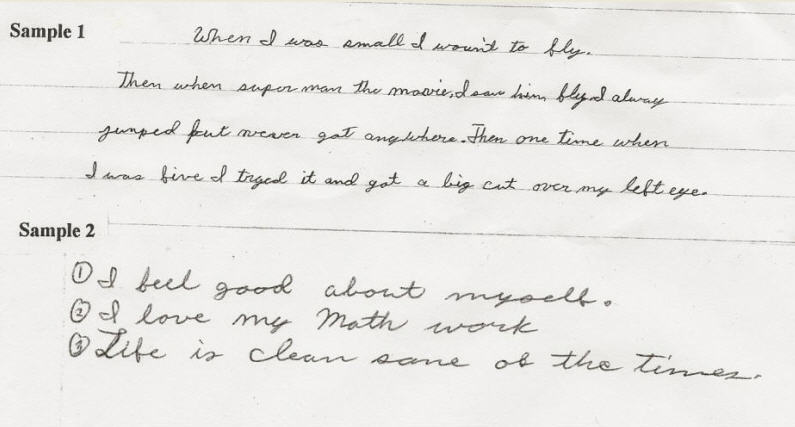 Sample 1
When I was small I wount to fly.
Then when super man the moovie, I saw him fly. I alway
jumped but never got anywhere. Then one time when
I was five I tryed it and got a big cut over my left eye.
Sample 2
① I feel good about myself.
② I love my Math work
③ Life is clean sane of the times.